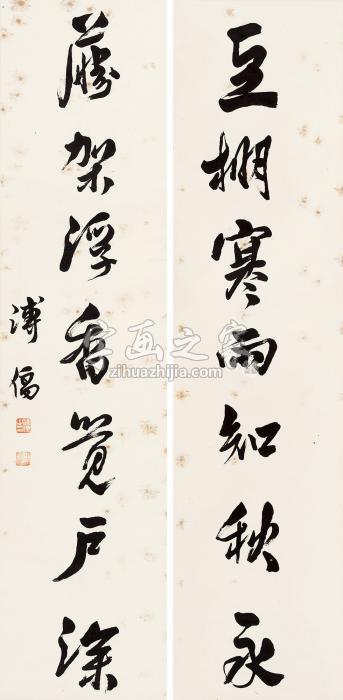 豆棚寒雨知秋永
藤架浮香覺戶深
溥
字画之家
zihuazhijia.com